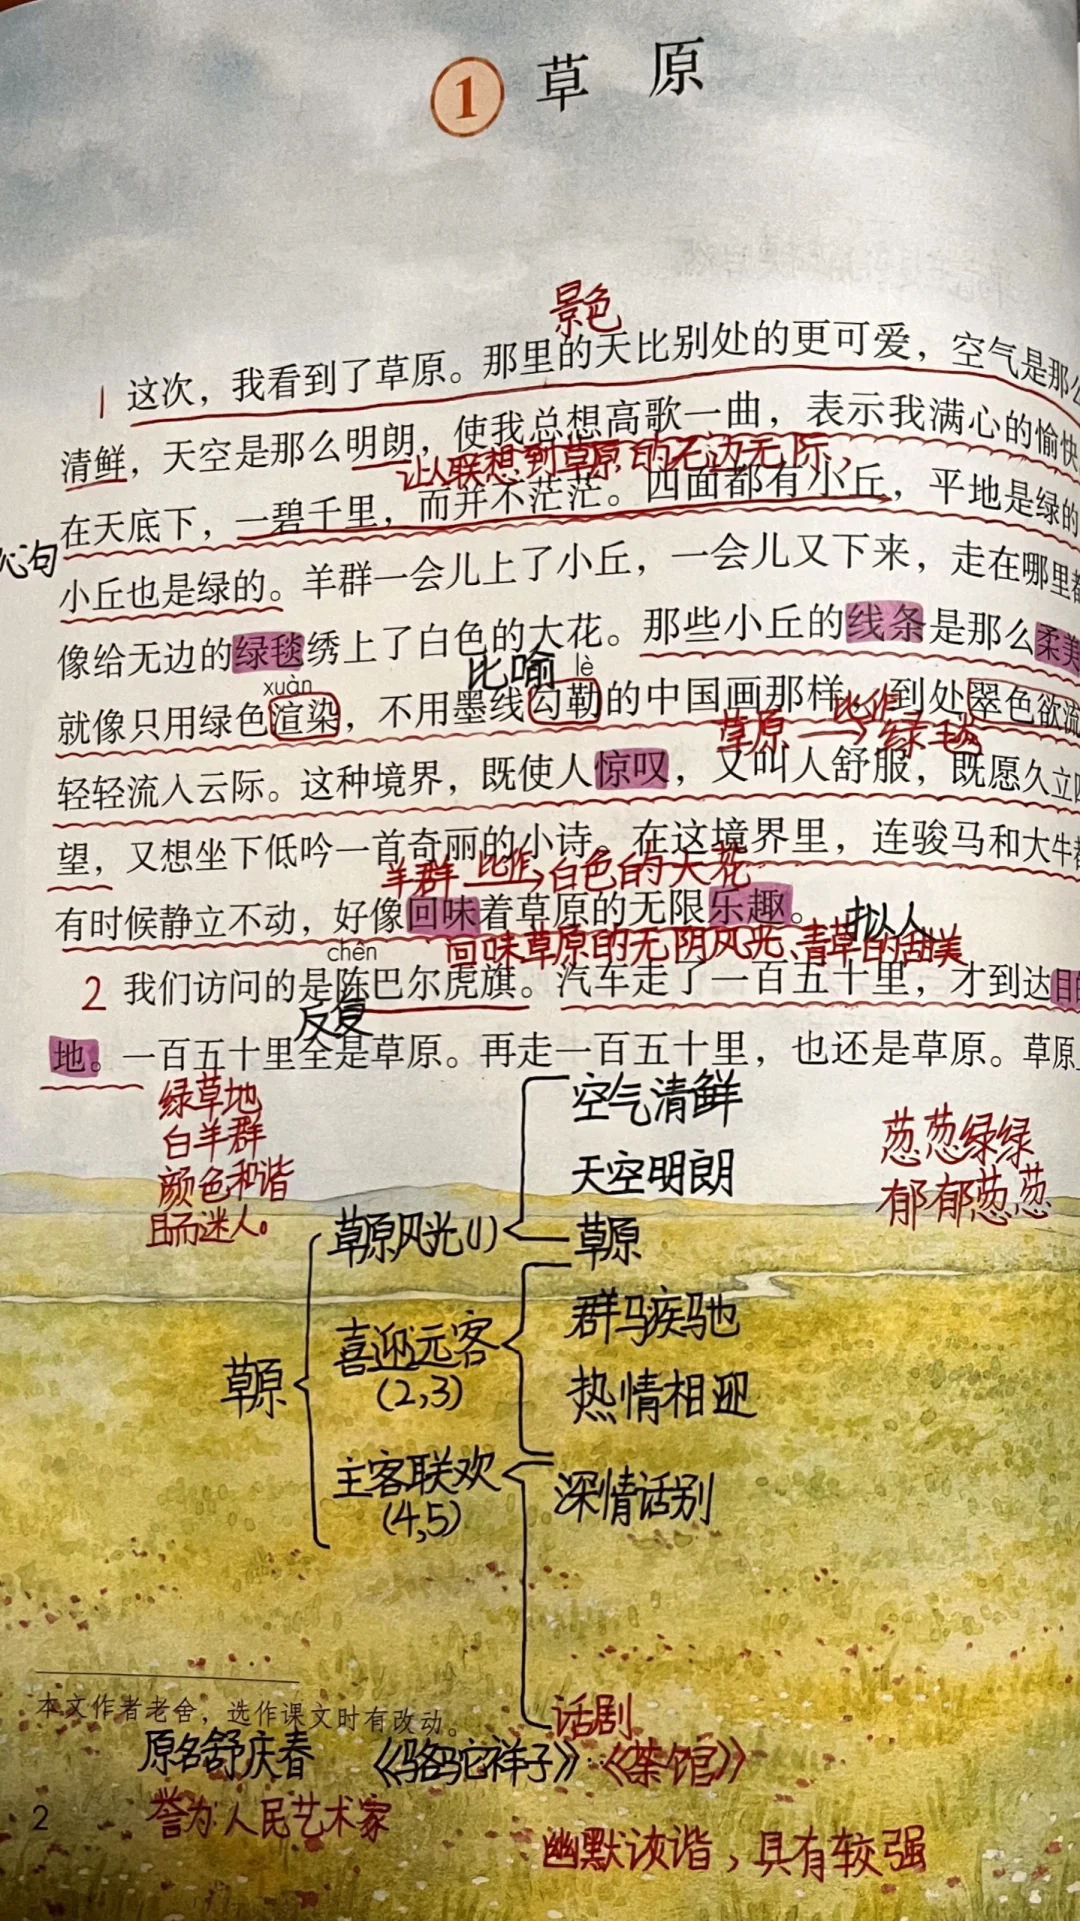 1 草 原
景色
1 这次，我看到了草原。那里的天比别处的更可爱，空气是那么
清鲜，天空是那么明朗，使我总想高歌一曲，表示我满心的愉快
让人联想到草原的无边无际，
在天底下，一碧千里，而并不茫茫。四面都有小丘，平地是绿的
心句
小丘也是绿的。羊群一会儿上了小丘，一会儿又下来，走在哪里都
像给无边的绿毯绣上了白色的大花。那些小丘的线条是那么柔美
比喻
xuàn lè
就像只用绿色渲染，不用墨线勾勒的中国画那样，到处翠色欲流
草原 比作 绿毯
轻轻流入云际。这种境界，既使人惊叹，又叫人舒服，既愿久立四
望，又想坐下低吟一首奇丽的小诗。在这境界里，连骏马和大牛都
羊群 比作 白色的大花
有时候静立不动，好像回味着草原的无限乐趣。 拟人
回味草原的无阴风光、青草的甜美
chén
2 我们访问的是陈巴尔虎旗。汽车走了一百五十里，才到达目的
反复
地。一百五十里全是草原。再走一百五十里，也还是草原。草原
绿草地
白羊群
颜色和谐
且而迷人。
空气清鲜
天空明朗
草原
葱葱绿绿
郁郁葱葱
草原风光(1)
群马疾驰
喜迎远客
(2,3)
热情相迎
草原
主客联欢
(4,5)
深情话别
本文作者老舍，选作课文时有改动。
话剧
原名舒庆春 《骆驼祥子》《茶馆》
2
誉为:人民艺术家
幽默诙谐，具有较强